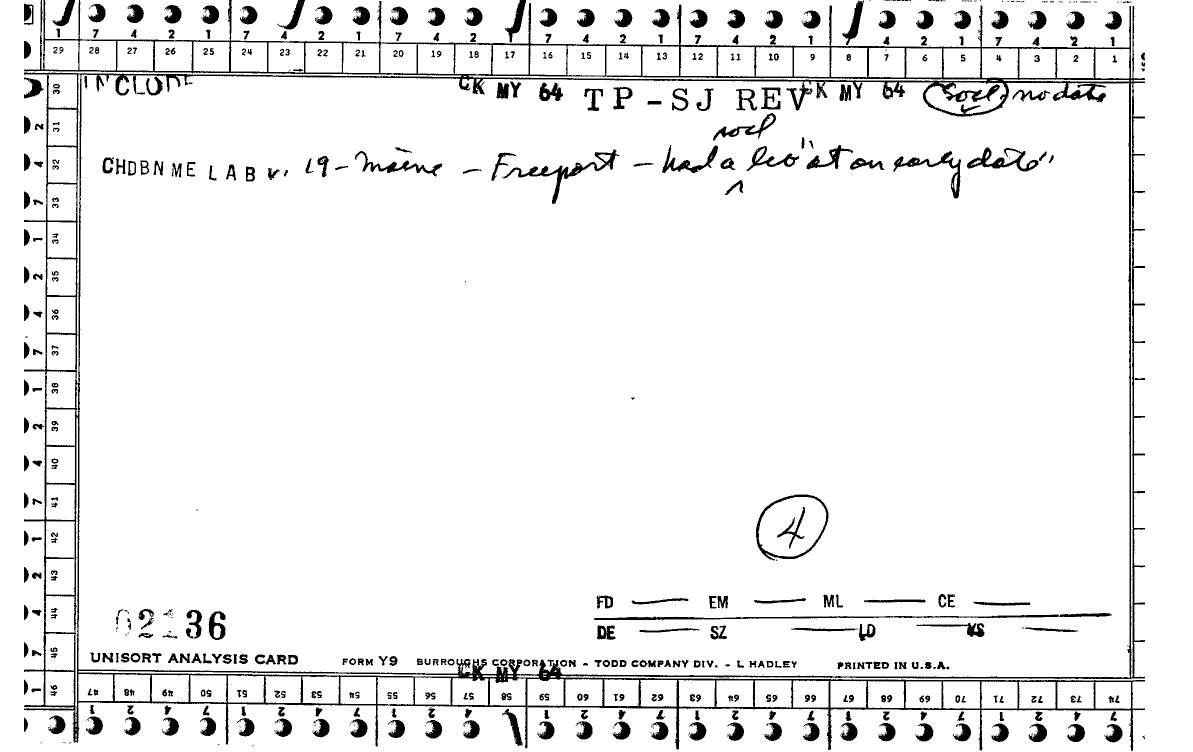 1 7 4 2 1 7 4 2 1 7 4 2 1 7 4 2 1 7 4 2 1 7 4 2 1 7 4 2 1
29 28 27 26 25 24 23 22 21 20 19 18 17 16 15 14 13 12 11 10 9 8 7 6 5 4 3 2 1
INCLUDE CK MY 64 TP-SJ REV CK MY 64 socl, no date
socl
CHDBNME LAB v. 19 - Maine - Freeport - had a leo "at an early date"
4
02136
FD EM ML CE
DE SZ LD KS
UNISORT ANALYSIS CARD FORM Y9 BURROUGHS CORPORATION - TODD COMPANY DIV. - L HADLEY PRINTED IN U.S.A.
CK MY 64
30 31 32 33 34 35 36 37 38 39 40 41 42 43 44 45 46
2 4 7 1 2 4 7 1 2 4 7 1 2 4 7 1
47 48 49 50 51 52 53 54 55 56 57 58 59 60 61 62 63 64 65 66 67 68 69 70 71 72 73 74